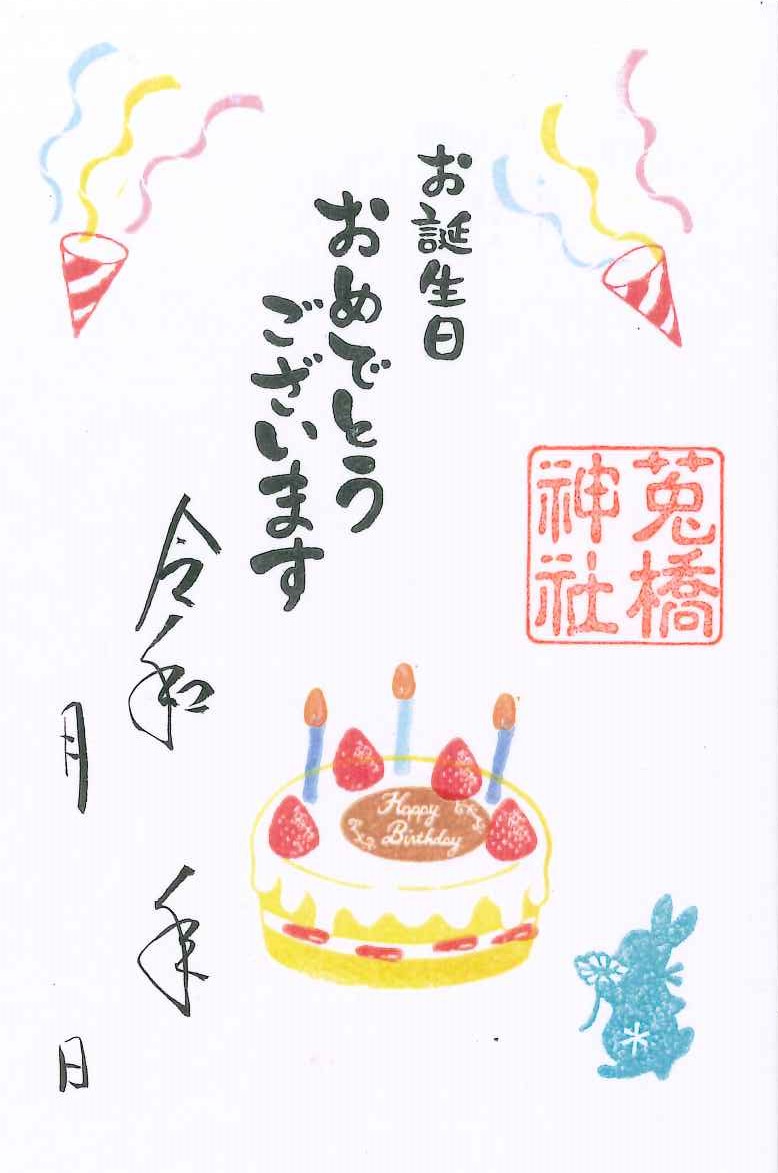 お誕生日
おめでとう
ございます
莵橋
神社
令和　年
月　日
Happy
Birthday